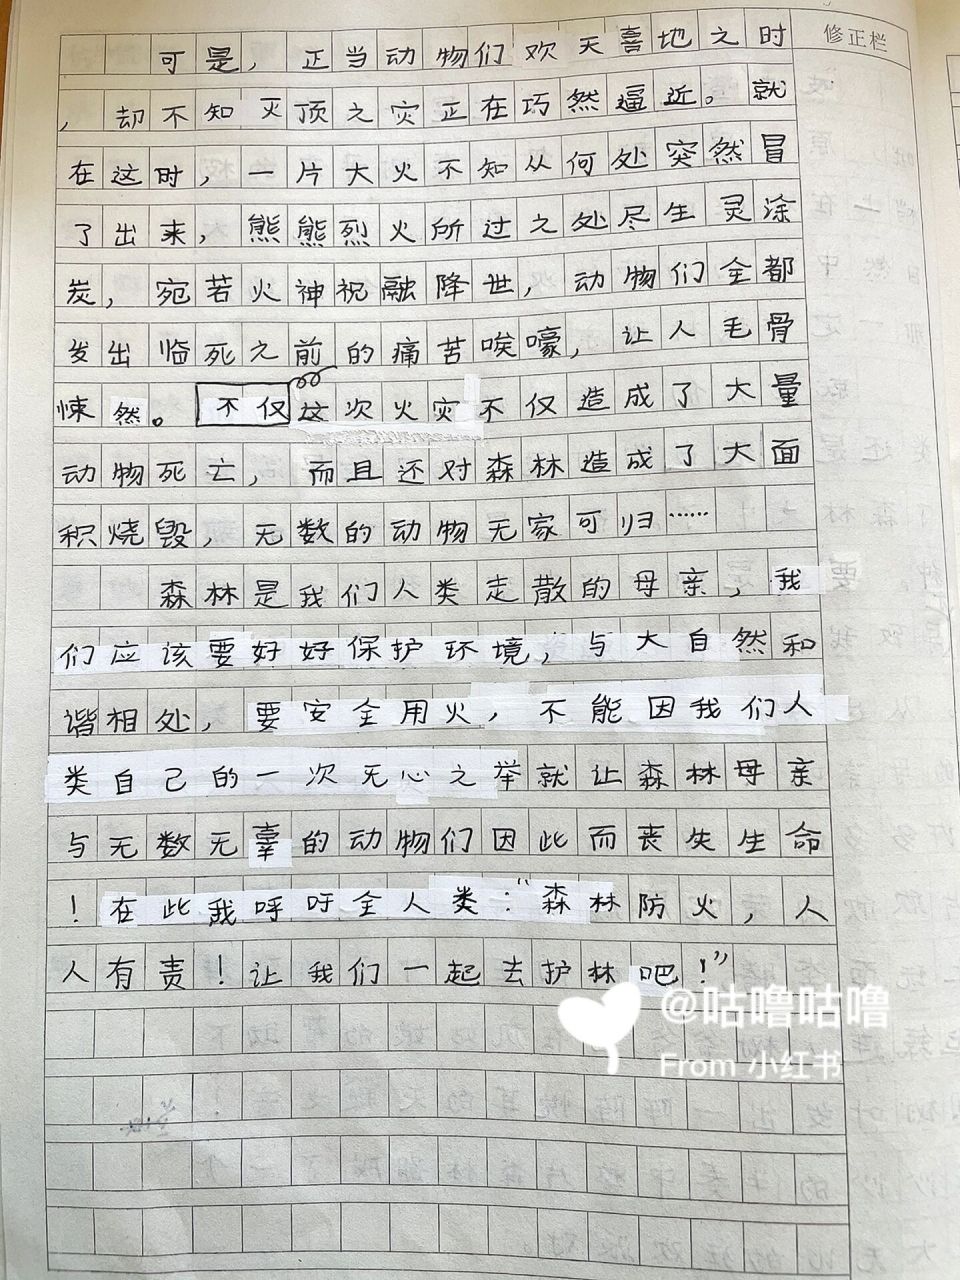 修正栏
可是，正当动物们欢天喜地之时
，却不知灭顶之灾正在巧然逼近。就
在这时，一片大火不知从何处突然冒
了出来，熊熊烈火所过之处尽生灵涂
炭，宛若火神祝融降世，动物们全都
发出临死之前的痛苦唉嚎，让人毛骨
悚然。不仅这次火灾不仅造成了大量
动物死亡，而且还对森林造成了大面
积烧毁，无数的动物无家可归……
森林是我们人类走散的母亲，我
们应该要好好保护环境，与大自然和
谐相处，要安全用火，不能因我们人
类自己的一次无心之举就让森林母亲
与无数无辜的动物们因此而丧失生命
！在此我呼吁全人类：“森林防火，人
人有责！让我们一起去护林吧！”
@咕噜咕噜
From 小红书